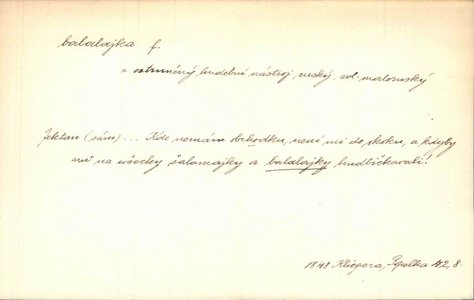 balalajka f.
= strunný hudební nástroj ruský, zvl. maloruský
Jektan (sám) ... Kde nemám obchodku, není mi do skoku, a kdyby
mi na wšecky šalamajky a balalajky hudličkovali!
1848 Klicpera, 42, 8.